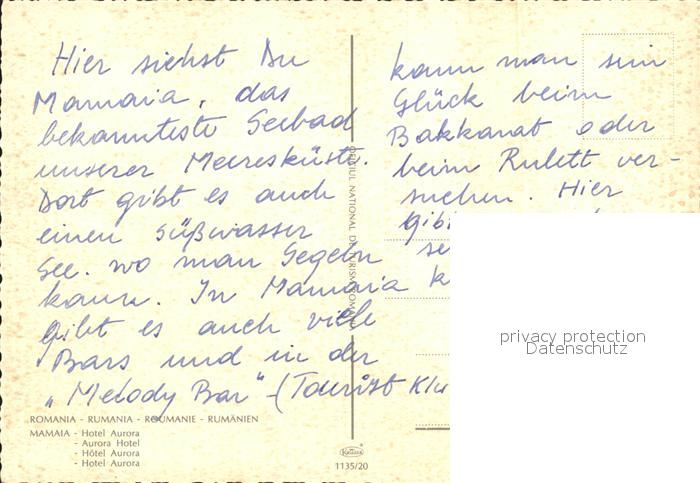 Hier siehst Du
Mamaia, das
bekannteste Seebad
unserer Meeresküste.
Dort gibt es auch
einen Süßwasser
See. wo man Segeln
kann. In Mamaia
gibt es auch viele
Bars und in der
"Melody Bar" - (Tourist Klu
kann man sein
Glück beim
Bakkarat oder
beim Rulett ver-
suchen. Hier
gibt
se
k
privacy protection
Datenschutz
ROMANIA - RUMANIA - ROUMANIE - RUMÄNIEN
MAMAIA - Hotel Aurora
- Aurora Hotel
- Hôtel Aurora
- Hotel Aurora
1135/20